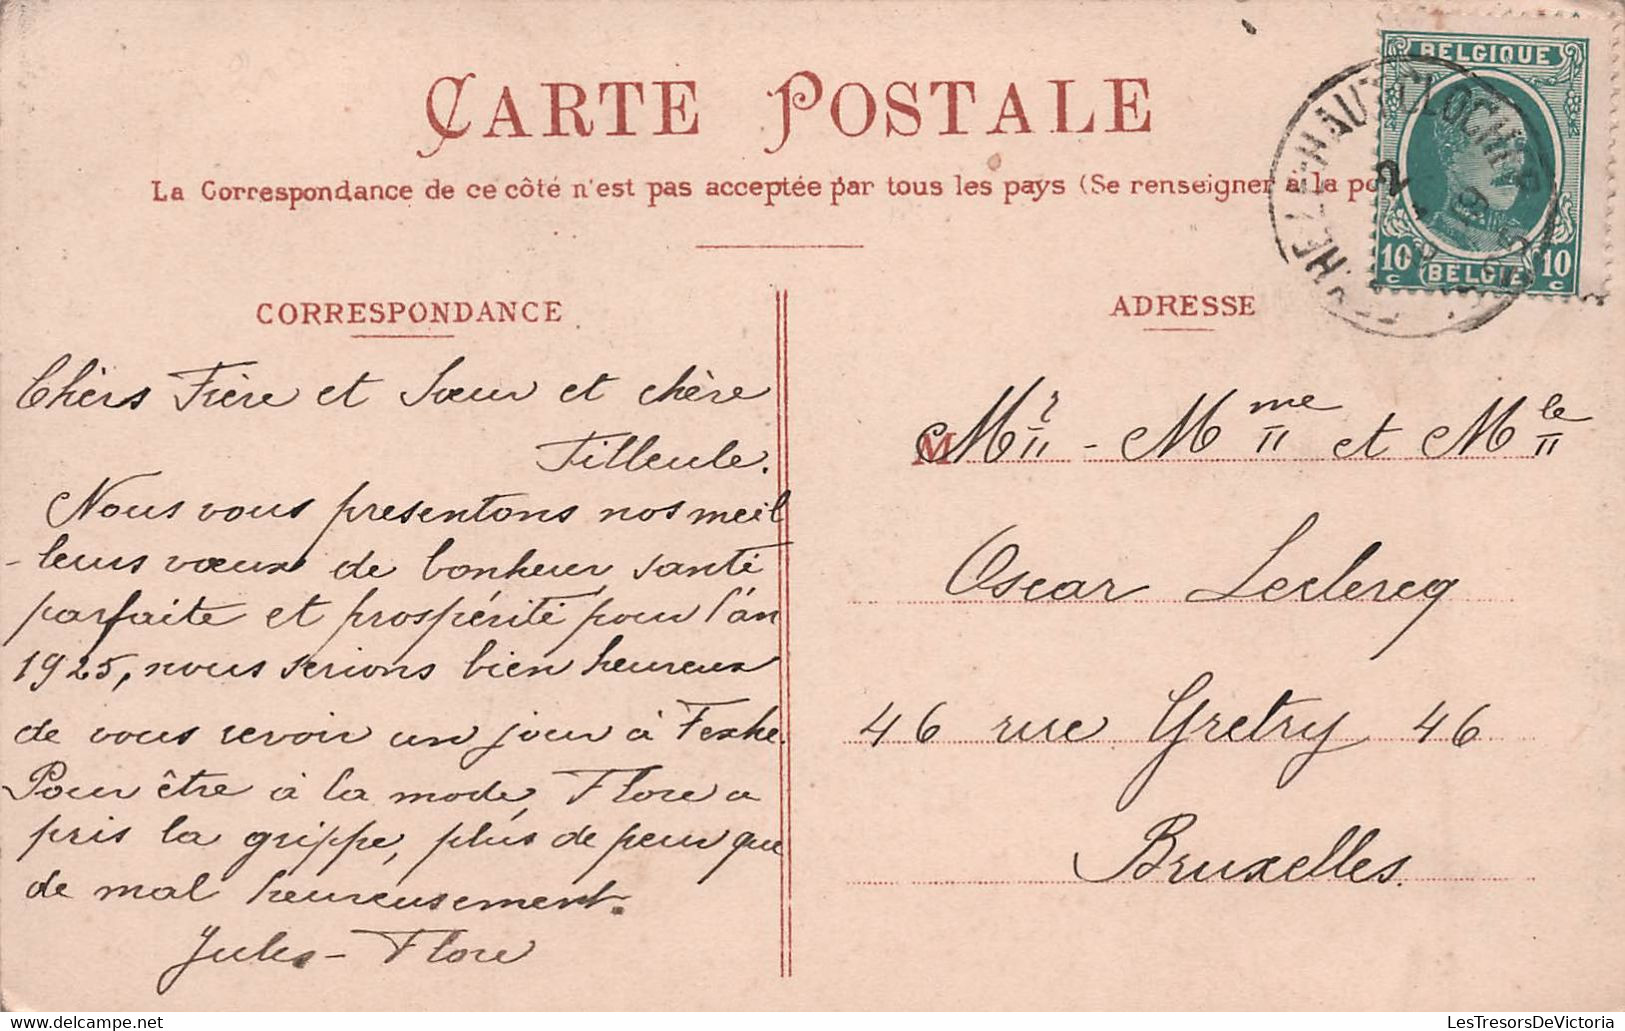 CARTE POSTALE
La Correspondance de ce côté n'est pas acceptée par tous les pays (Se renseigner à la po
BELGIQUE
10 c BELGIË 10 c
FEXHE-LE-HAUT-CLOCHER
CORRESPONDANCE
Chèrs Frère et Sœur et chère
Filleule.
Nous vous presentons nos meil
-leurs vœux de bonheur, santé
parfaite et prospérité pour l'an
1925, nous serions bien heureux
de vous revoir un jour à Fexhe.
Pour être à la mode, Flore a
pris la grippe, plus de peur que
de mal heureusement.
Jules - Flore
ADRESSE
M Mr - Mme et Mle
Oscar Leclercq
46 rue Gretry 46
Bruxelles.
LesTresorsDeVictoria